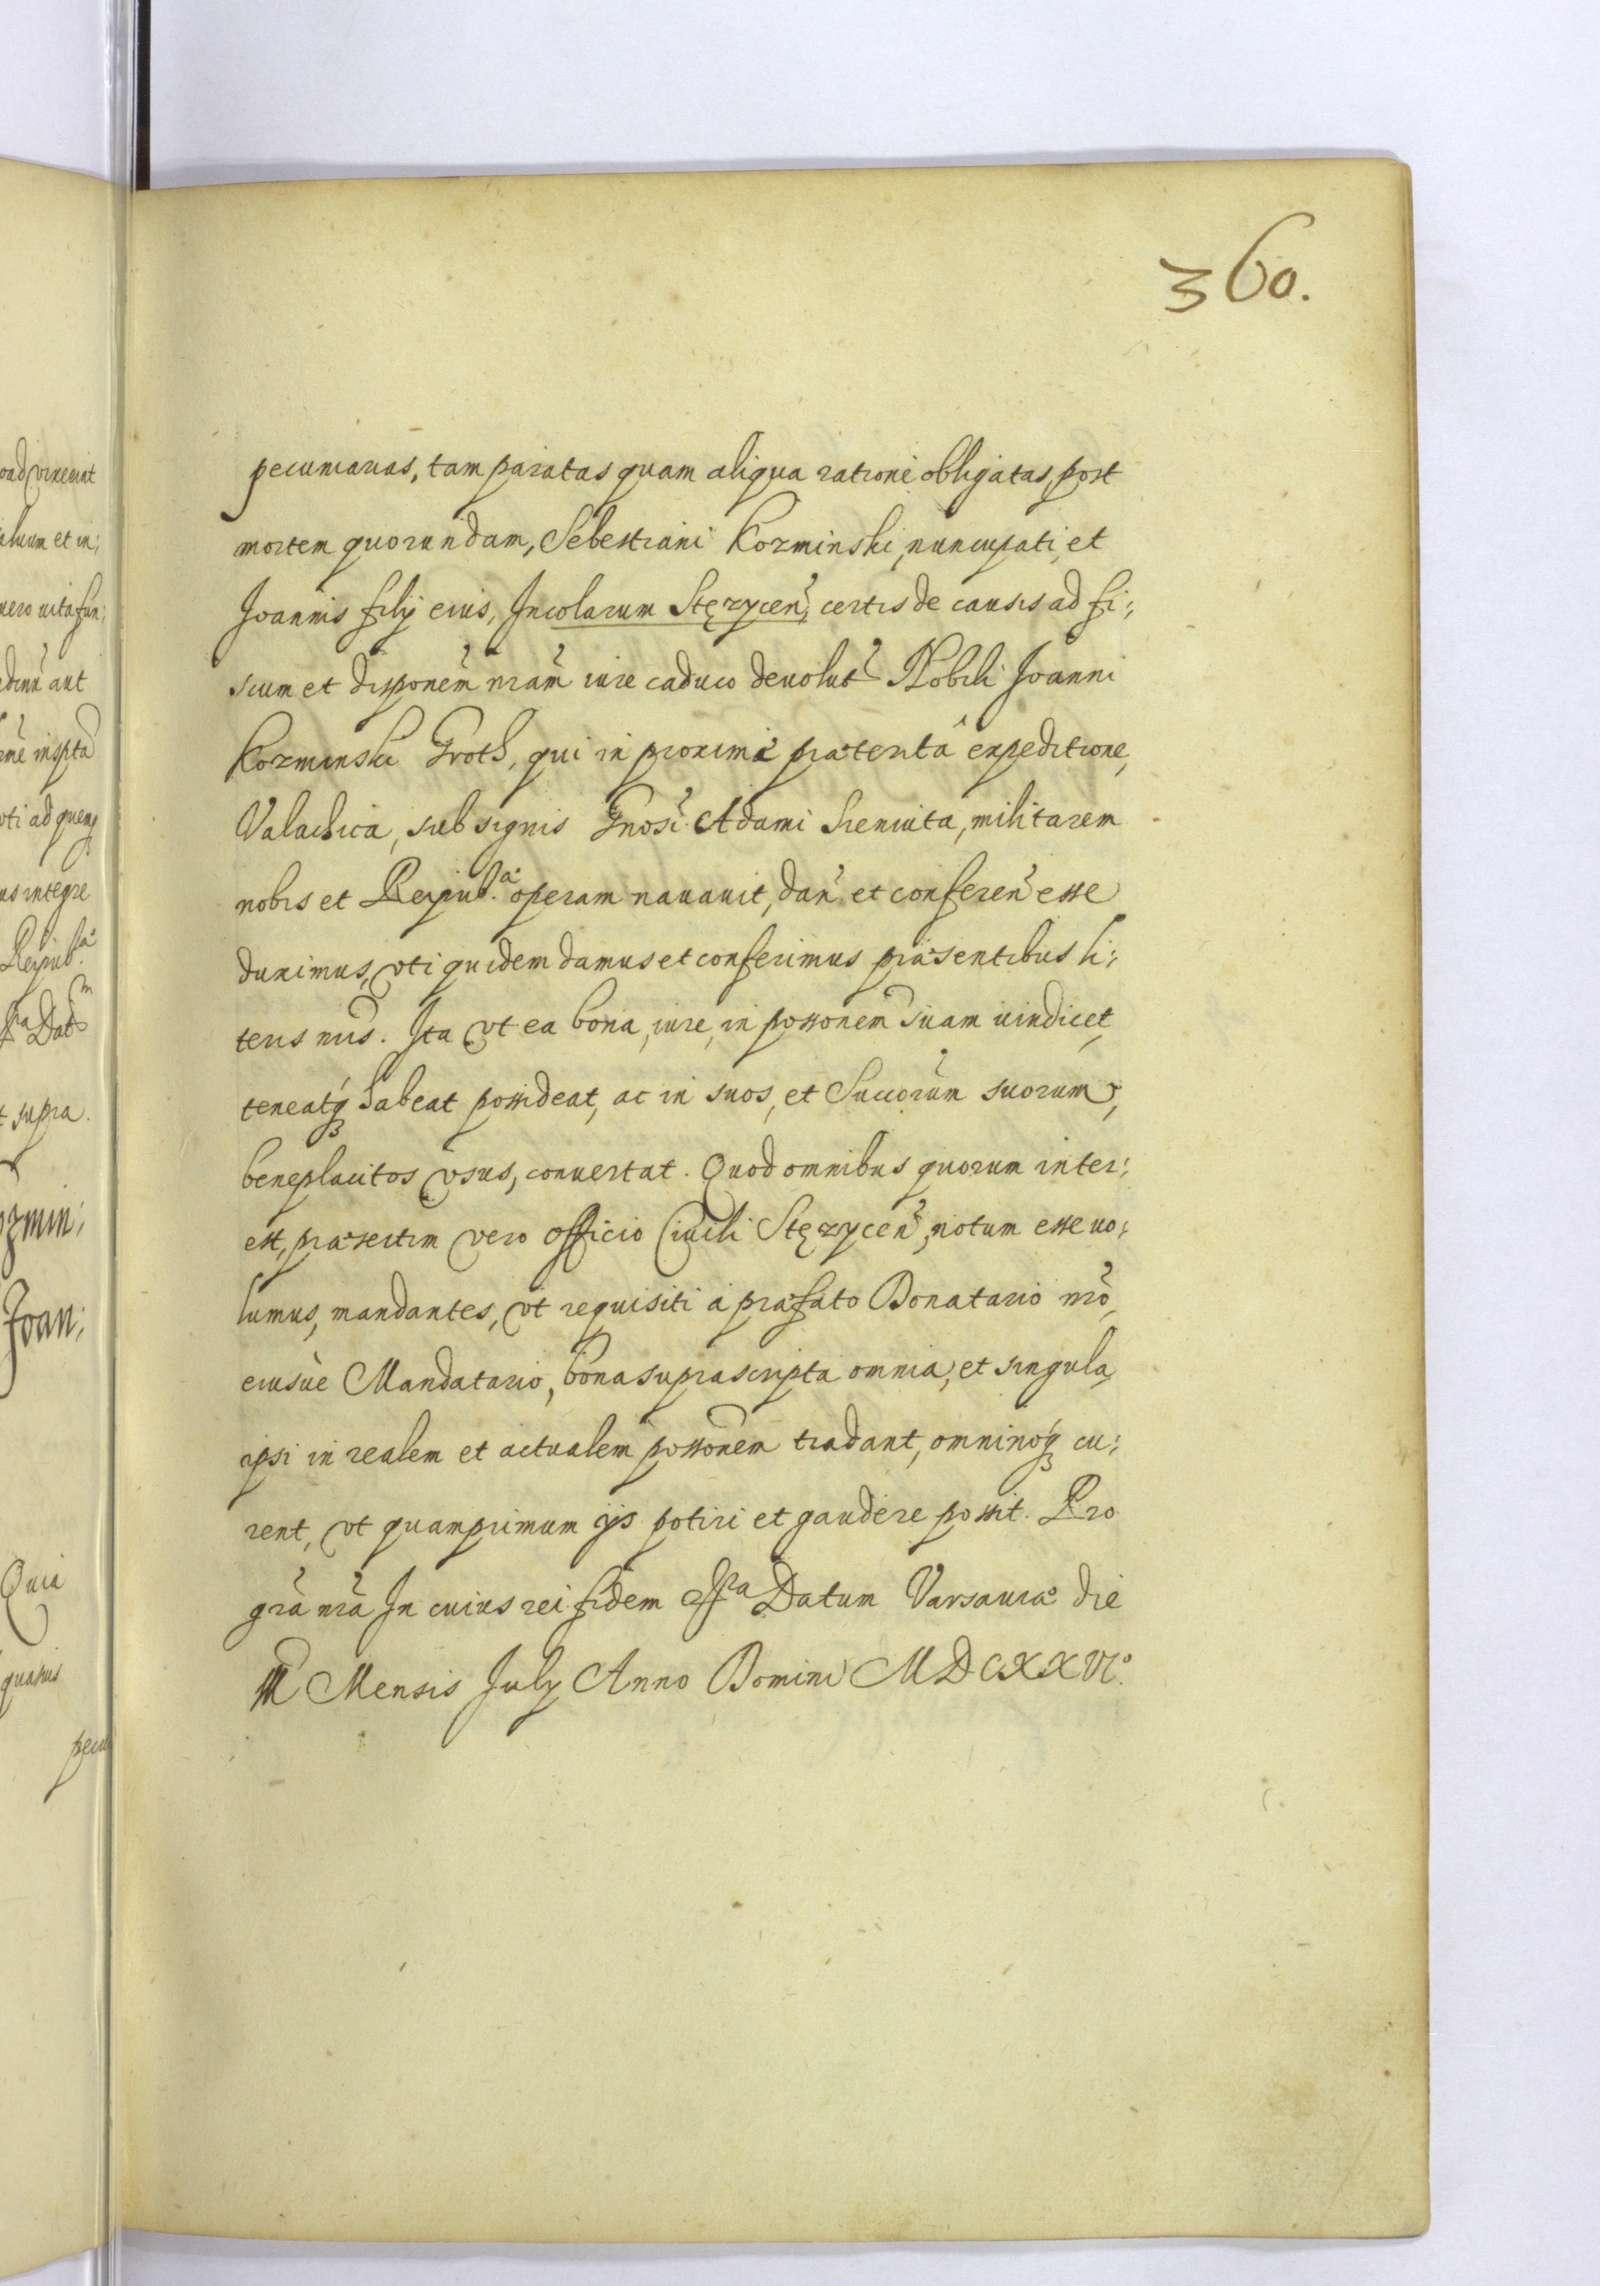 360.
pecuniarias, tam paratas quam aliqua ratione obligatas, post
mortem quorundam, Sebestiani Kozminski, nuncupati, et
Joannis filij eius, Incolarum Stęzycen̄, certis de causis ad fi:
scum et disponem̄ nram̄ iure caduco deuolut Nobili Joanni
Kozminski Groth, qui in proxime præterita expeditione,
Valachica, sub signis Gnosi Adami Sieniuta, militarem
nobis et Reipub.æ operam nauauit, dan̄ et conferen̄ esse
duximus, vti quidem damus et conferimus præsentibus li:
teris nris. Ita vt ea bona, iure, in possonem suam uindicet,
teneatq́ habeat possideat, ac in suos, et Succorum̄ suorum,
beneplacitos vsus, conuertat. Quod omnibus quorum inter:
est, præsertim vero officio Ciuili Stęzycen̄, notum esse uo:
lumus, mandantes, vt requisiti a præfato Donatario nro̅,
eiusue Mandatario, bona suprascripta omnia, et singula,
ipsi in realem et actualem possonem tradant, omninoq́ cu:
rent, vt quamprimum ijs potiri et gaudere possit. Pro
gra̅ nra̅ In cuius rei fidem &ra Datum Varsauiæ die
Mensis July Anno Domini MDCXXVIº.
oad
aluum et in:
uero uita fun:
aut
vti ad
us integre
Reipub.æ
Dat
t supra.
ozmin:
Joan:
Quia
pecu